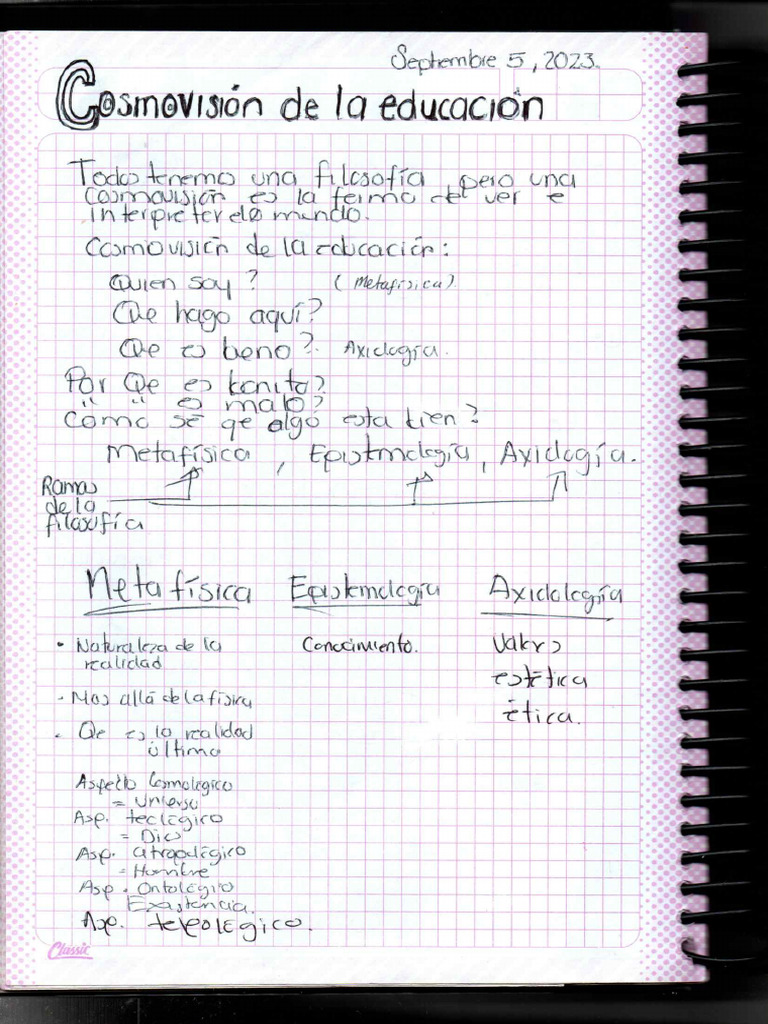 Septiembre 5, 2023.
Cosmovisión de la educación
Todos tenemos una filosofía pero una
cosmovisión es la forma de ver e
interpreter el mundo.
Cosmovisión de la educación:
Quien soy? (Metafísica)
Que hago aquí?
Qe es beno? Axiología.
Por Qe es bonito?
" " es malo?
Cómo sé qe algo esta bien?
Metafísica, Epistmología, Axiología.
Ramas
de la
filosofía
Metafísica Epistemología Axidología
• Naturaleza de la Conocimiento. Valores
realidad estética
- Mas allá de la física ética.
• Qe es la realidad
última
Aspecto Cosmológico
= Universo
Asp. teológico
= Dios
Asp. atropológico
= Hombre
Asp. Ontológico
Existencia.
Asp. teleológico.
Classic